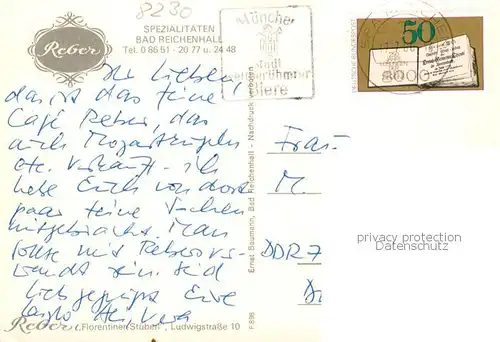 8230
Reber
SPEZIALITÄTEN
BAD REICHENHALL
Tel. 0 86 51 - 20 77 u. 24 48
München
Stadt
weltberühmter
Biere
50
DEUTSCHE BUNDESPOST
8000
Ihr Lieben,
das ist das feine
Café Reber, das
auch Mozartkugeln
etc. verkauft - ich
habe Euch von dort
paar feine Sachen
mitgebracht. Man
sollte mit Rebers ver-
wandt sein. Seid
lieb gegrüsst Eure
Vera
Frau
M.
DDR 7
Ernst Baumann, Bad Reichenhall - Nachdruck verboten
F 836
privacy protection
Datenschutz
Reber's „Florentiner Stuben", Ludwigstraße 10